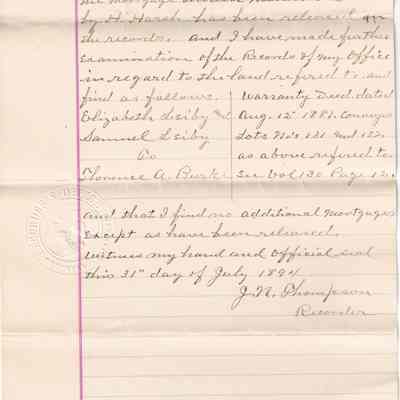 the mortgage
by H. Harsh has been released on
the records. And I have made further
Examination of the Records of my Office
in regard to the land referred to and
find as follows.
Elizabeth Leiby and
Samuel Leiby
To
Florence A. Burke
Warranty Deed dated
Aug. 12" 1881. Conveys
Lots Nos 121 and 122.
as above referred to.
See Vol 130 Page 12.
and that I find no additional Mortgages
Except as have been released.
Witness my hand and Official seal
this 31" day of July 1894
J. N. Thompson
Recorder